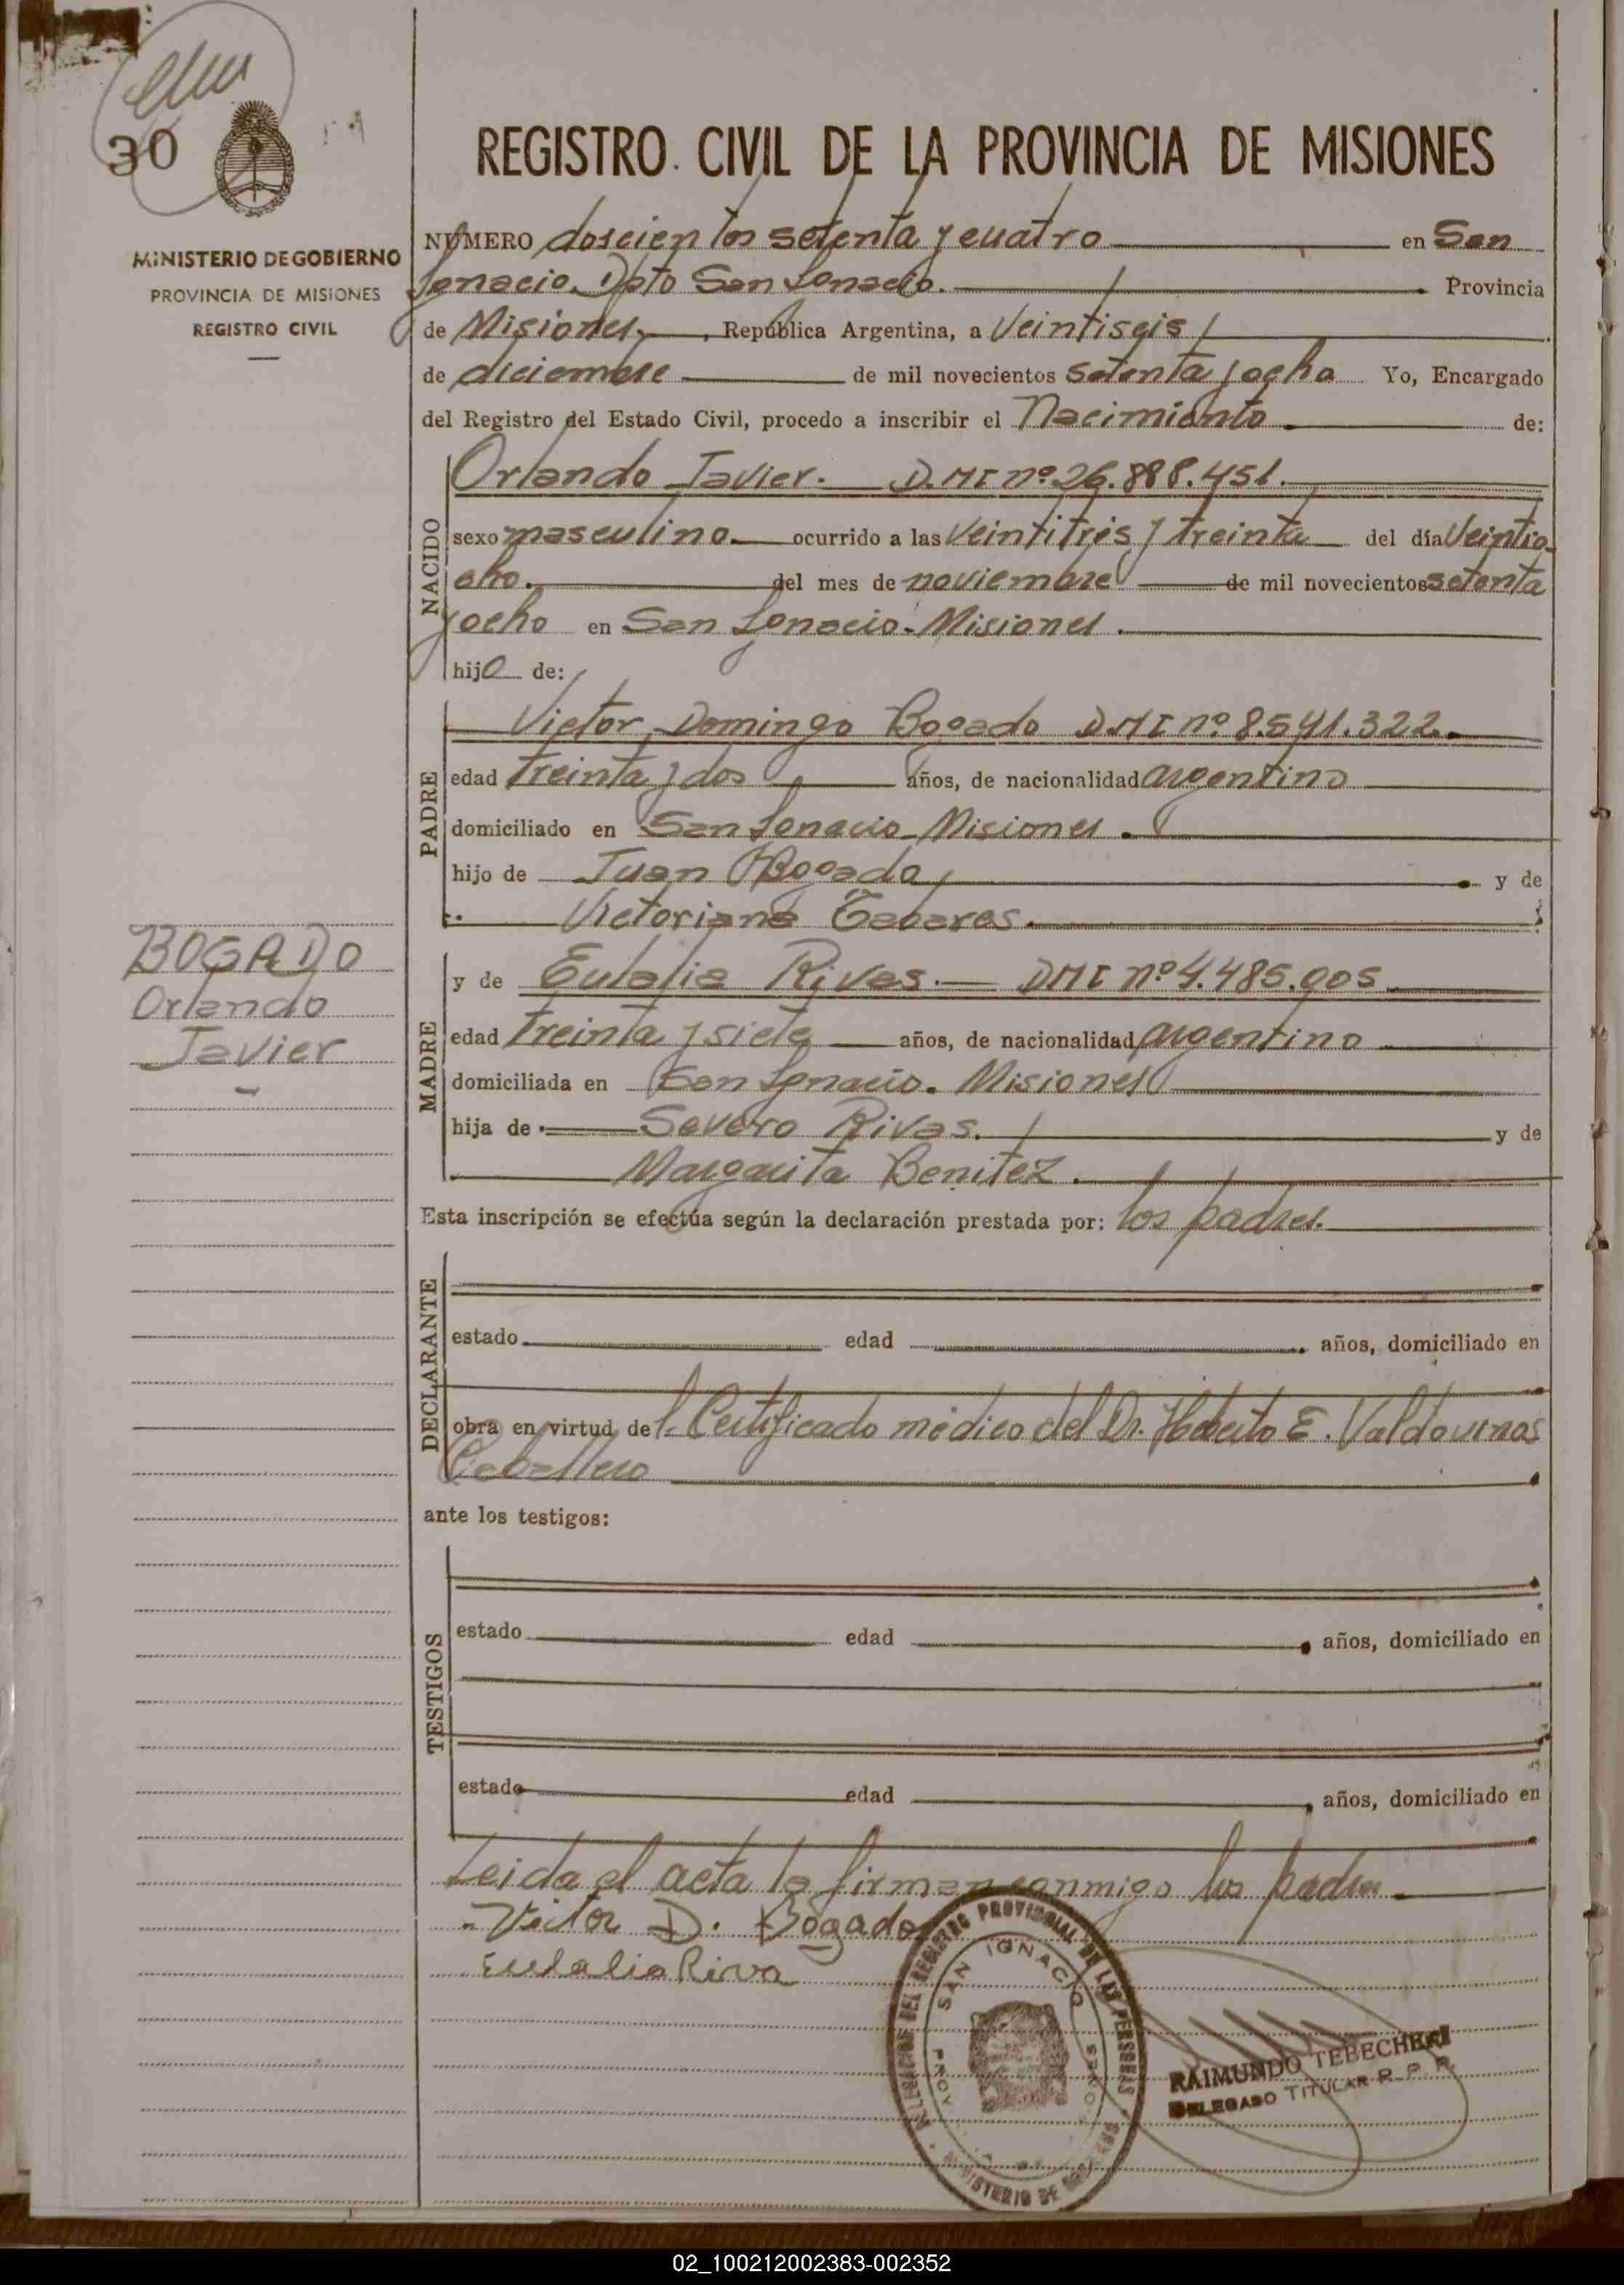 30
MINISTERIO DE GOBIERNO
PROVINCIA DE MISIONES
REGISTRO CIVIL
BOGADO
Orlando
Javier
REGISTRO CIVIL DE LA PROVINCIA DE MISIONES
NUMERO doscientos setenta y cuatro en San
Ignacio. Dpto San Ignacio. Provincia
de Misiones, República Argentina, a Veintiseis
de diciembre de mil novecientos setenta y ocho Yo, Encargado
del Registro del Estado Civil, procedo a inscribir el Nacimiento. de:
NACIDO
Orlando Javier. D.M.I nº 26.888.451.
sexo masculino. ocurrido a las Veintitrés y treinta del día Veintio-
cho. del mes de noviembre de mil novecientos setenta
y ocho en San Ignacio-Misiones.
hijo de:
PADRE
Victor Domingo Bogado D.M.I nº 8.541.322.
edad treinta y dos años, de nacionalidad argentino
domiciliado en San Ignacio-Misiones.
hijo de Juan Bogado y de
Victoriana Tabares.
MADRE
y de Eulalia Rivas. DMI nº 4.485.905
edad treinta y siete años, de nacionalidad argentino
domiciliada en San Ignacio. Misiones
hija de Severo Rivas. y de
Margarita Benitez.
Esta inscripción se efectúa según la declaración prestada por: los padres.
DECLARANTE
estado edad años, domiciliado en
obra en virtud de l- Certificado médico del Dr. E. Valdovinos
Caballero
ante los testigos:
TESTIGOS
estado edad años, domiciliado en
estado edad años, domiciliado en
Leida el acta la firman conmigo los padres
Victor D. Bogado
Eulalia Riva
DELEGACION DEL REGISTRO PROVINCIAL DE LAS PERSONAS
SAN IGNACIO
MINISTERIO DE
RAIMUNDO TEBECHERI
DELEGADO TITULAR R. P. P.
02_100212002383-002352